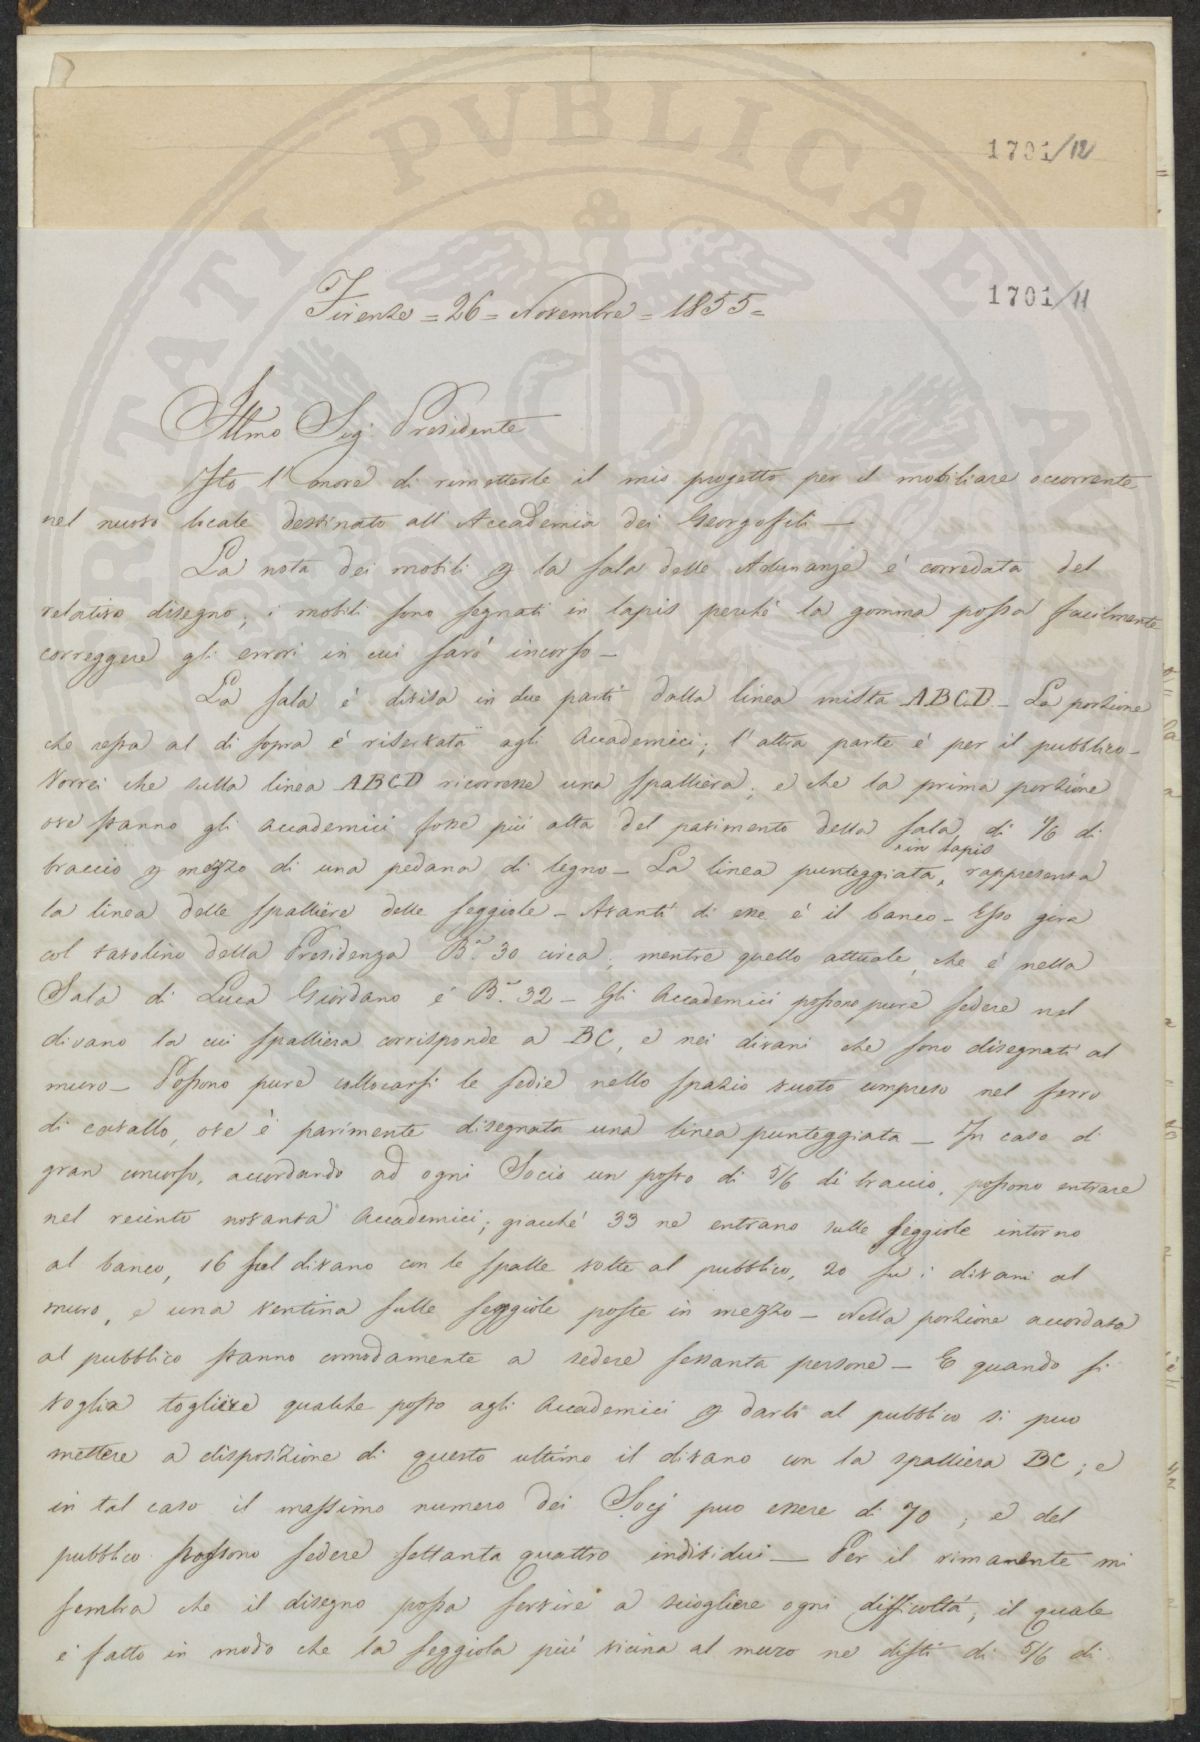 PVBLICAE
1701/12
1701/11
Firenze = 26 = Novembre = 1855 =
Illmo Sig. Presidente
Ho l'onore di rimetterle il mio progetto per il mobiliare occorrente
nel nuovo locale destinato all'Accademia dei Georgofili —
La nota dei mobili p la sala delle Adunanze è corredata del
relativo disegno; i mobili sono segnati in lapis perché la gomma possa facilmente
correggere gli errori in cui sarò incorso —
La sala è divisa in due parti dalla linea mista ABCD — La porzione
che resta al di sopra è riservata agli Accademici; l'altra parte è per il pubblico —
Vorrei che sulla linea ABCD ricorresse una spalliera; e che la prima porzione
ove stanno gli Accademici fosse più alta del pavimento della sala di 1/6 di
braccio p mezzo di una pedana di legno — La linea punteggiata, in lapis rappresenta
la linea delle spalliere delle seggiole — Avanti di esse è il banco — Esso gira
col tavolino della Presidenza Ba 30 circa; mentre quello attuale, che è nella
Sala di Luca Giordano è Ba 32 — Gli Accademici possono pure sedere nel
divano la cui spalliera corrisponde a BC, e nei divani che sono disegnati al
muro — Possono pure collocarsi le sedie nello spazio vuoto compreso nel ferro
di cavallo, ove è parimente disegnata una linea punteggiata — In caso di
gran concorso, accordando ad ogni Socio un posto di 5/6 di braccio, possono entrare
nel recinto novanta Accademici; giacché 33 ne entrano sulle seggiole intorno
al banco, 16 sul divano con le spalle volte al pubblico, 20 su i divani al
muro, e una ventina sulle seggiole poste in mezzo — Nella porzione accordata
al pubblico stanno comodamente a sedere sessanta persone — E quando si
voglia togliere qualche posto agli Accademici p darli al pubblico si puo
mettere a disposizione di questo ultimo il divano con la spalliera BC; e
in tal caso il massimo numero dei Socj puo essere di 70; e del
pubblico possono sedere settanta quattro individui — Per il rimanente mi
sembra che il disegno possa servire a sciogliere ogni difficoltà, il quale
è fatto in modo che la seggiola più vicina al muro ne disti di 5/6 di